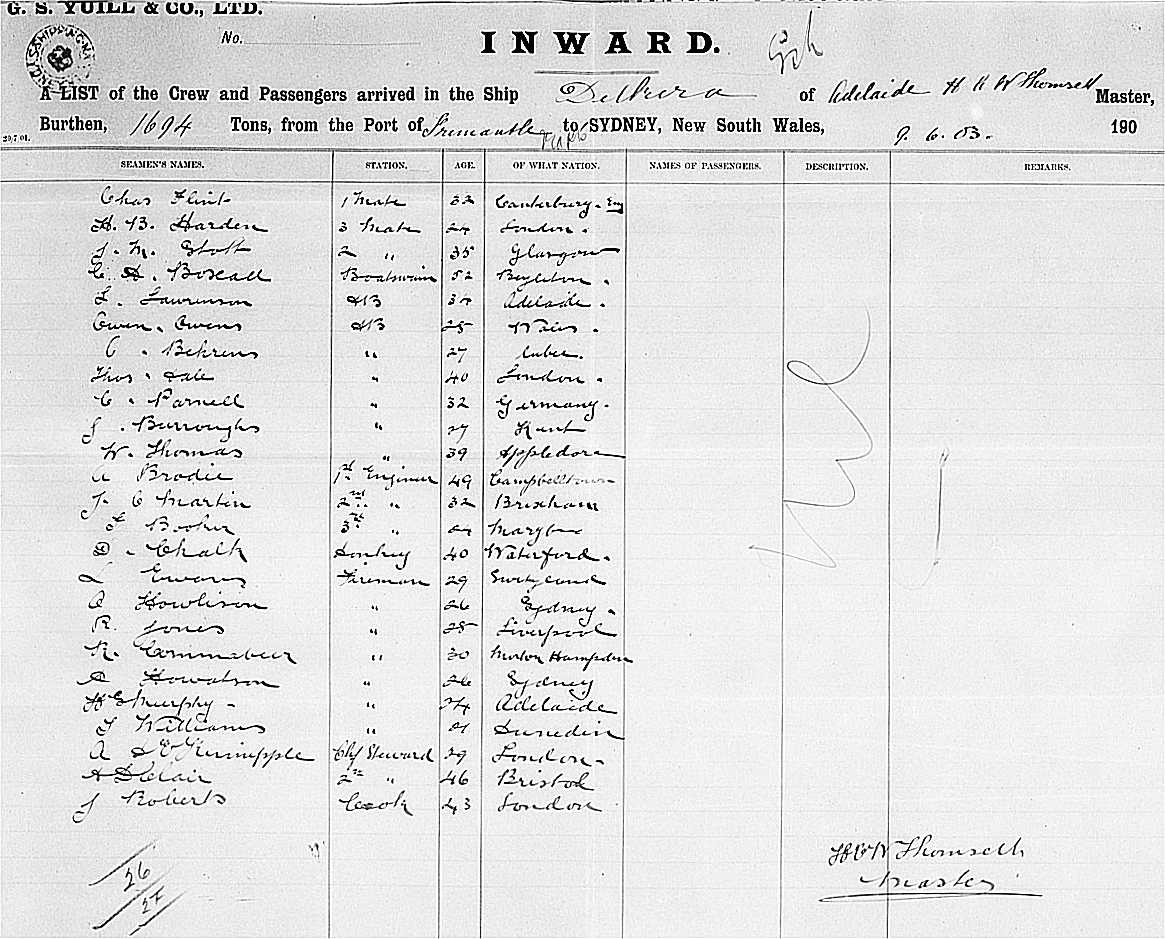 G. S. YUILL & CO., LTD.
No.
INWARD.
A LIST of the Crew and Passengers arrived in the Ship of Adelaide H W Thomsett Master,
Burthen, 1694 Tons, from the Port of Fremantle to SYDNEY, New South Wales, 9. 6. 03. 190
29.7.01.
SEAMEN'S NAMES. STATION. AGE. OF WHAT NATION. NAMES OF PASSENGERS. DESCRIPTION. REMARKS.
Chas Flint 1 Mate 32 Canterbury. Eng
H. B. Harden 3 Mate 24 London.
J. M. Stott 2 " 35 Glasgow
C. A. Boxall Boatswain 52
L. Lawrenson AB 34 Adelaide.
Owen. Owens AB 25
C. Behrens " 27
Thos. Dale " 40 London.
C. Parnell " 32 Germany.
J. Burroughs " 27 Kent
W. Thomas " 39 Appledore
A Brodie 1st Engineer 49 Campbelltown
J. C Martin 2nd " 32 Brixham
Booker 3rd "
D. Chalk Donkey 40 Waterford.
L Ewans Fireman 29
A Howlison " 26 Sydney.
R. Jones " 25 Liverpool
R. " 30 Morton Hampden
A Howatson " 26 Sydney
H E Murphy " 24 Adelaide
Williams " 21 Dunedin
A Chf Steward 29 London.
A D Clair 2nd " 46 Bristol
J Roberts Cook 43 London
Nil
26
27
H W Thomsett
Master